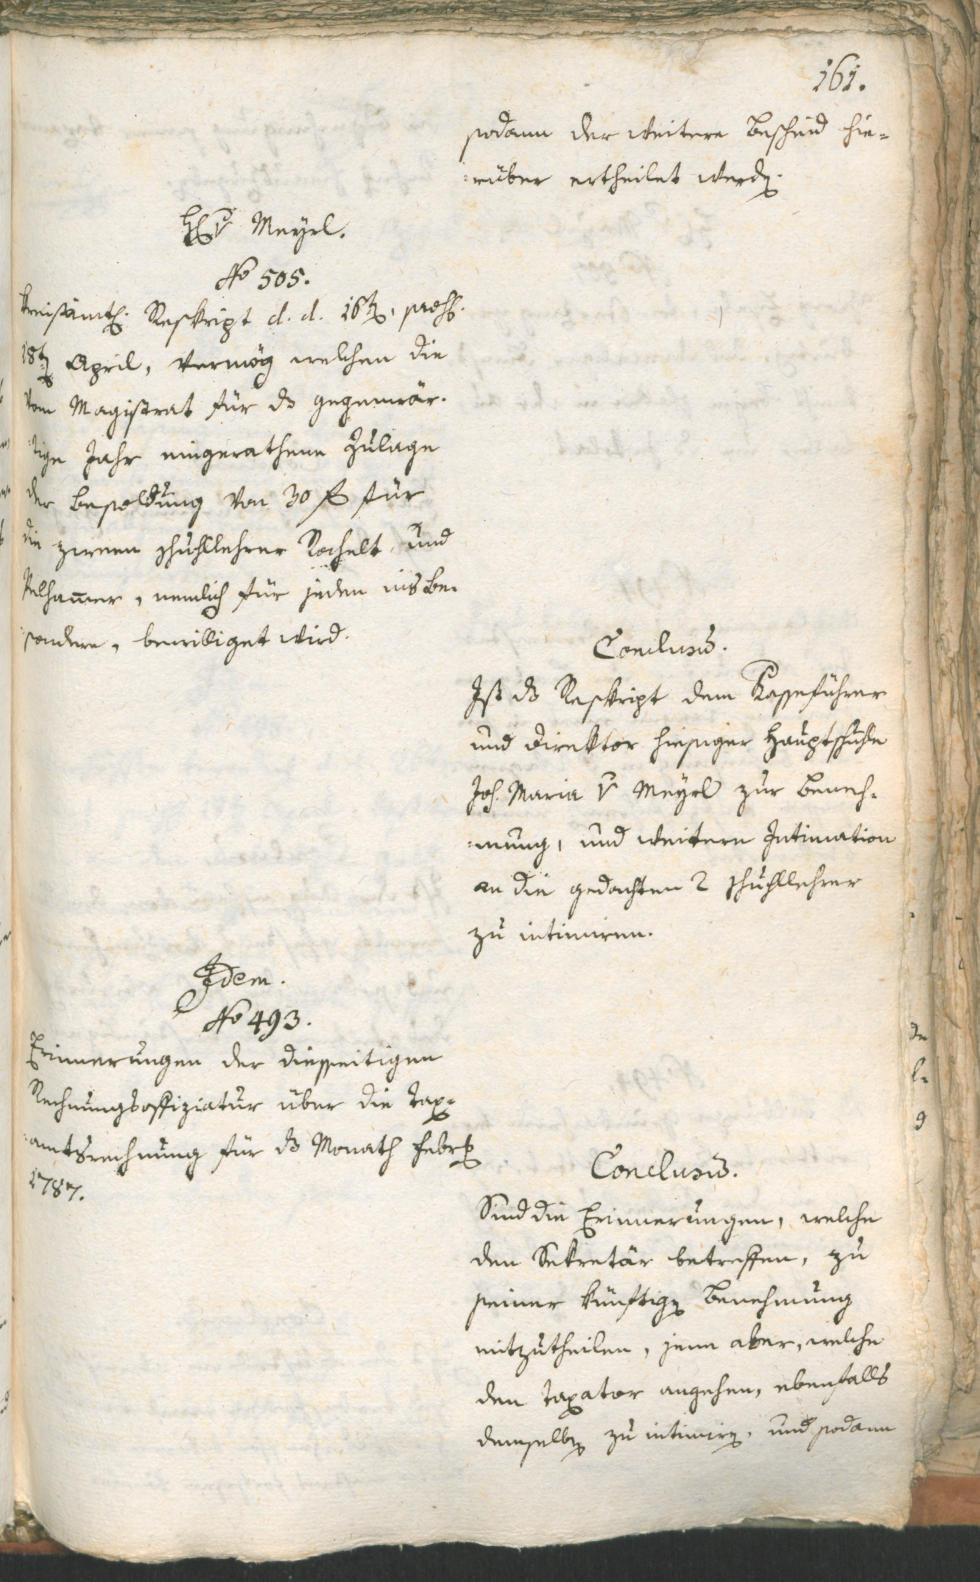 161.
sodann der weitere Bescheid hie-
rüber ertheilet werdn.
H v Meyrl.
No 505.
Kreisämtl. Reskript d. d. 16tn, präs.
18tn April, vermög welchen die
vom Magistrat für ds gegenwär-
tige Jahr eingerathene Zulage
der Besoldung von 30 f für
die zween Schullehrer Rochelt und
Pelhamer, nemlich für jeden ins be-
sondere, bewilliget wird.
Conclusũ.
Ist ds Reskript dem Kasseführer
und Direktor hiesiger Hauptschule
Joh. Maria v Meyrl zur Beneh-
mung, und weitern Intimation
an die gedachten 2 Schullehrer
zu intimiren.
Idem.
No 493.
Erinnerungen der diesseitigen
Rechnungsoffiziatur über die Tax-
amtsrechnung für ds Monath Febr
1787.
Conclusũ.
Sind die Erinnerungen, welche
den Sekretär betreffen, zu
seiner künftign Benehmung
mitzutheilen, jene aber, welche
den Taxator angehen, ebenfalls
demselbn zu intimirn, und sodann